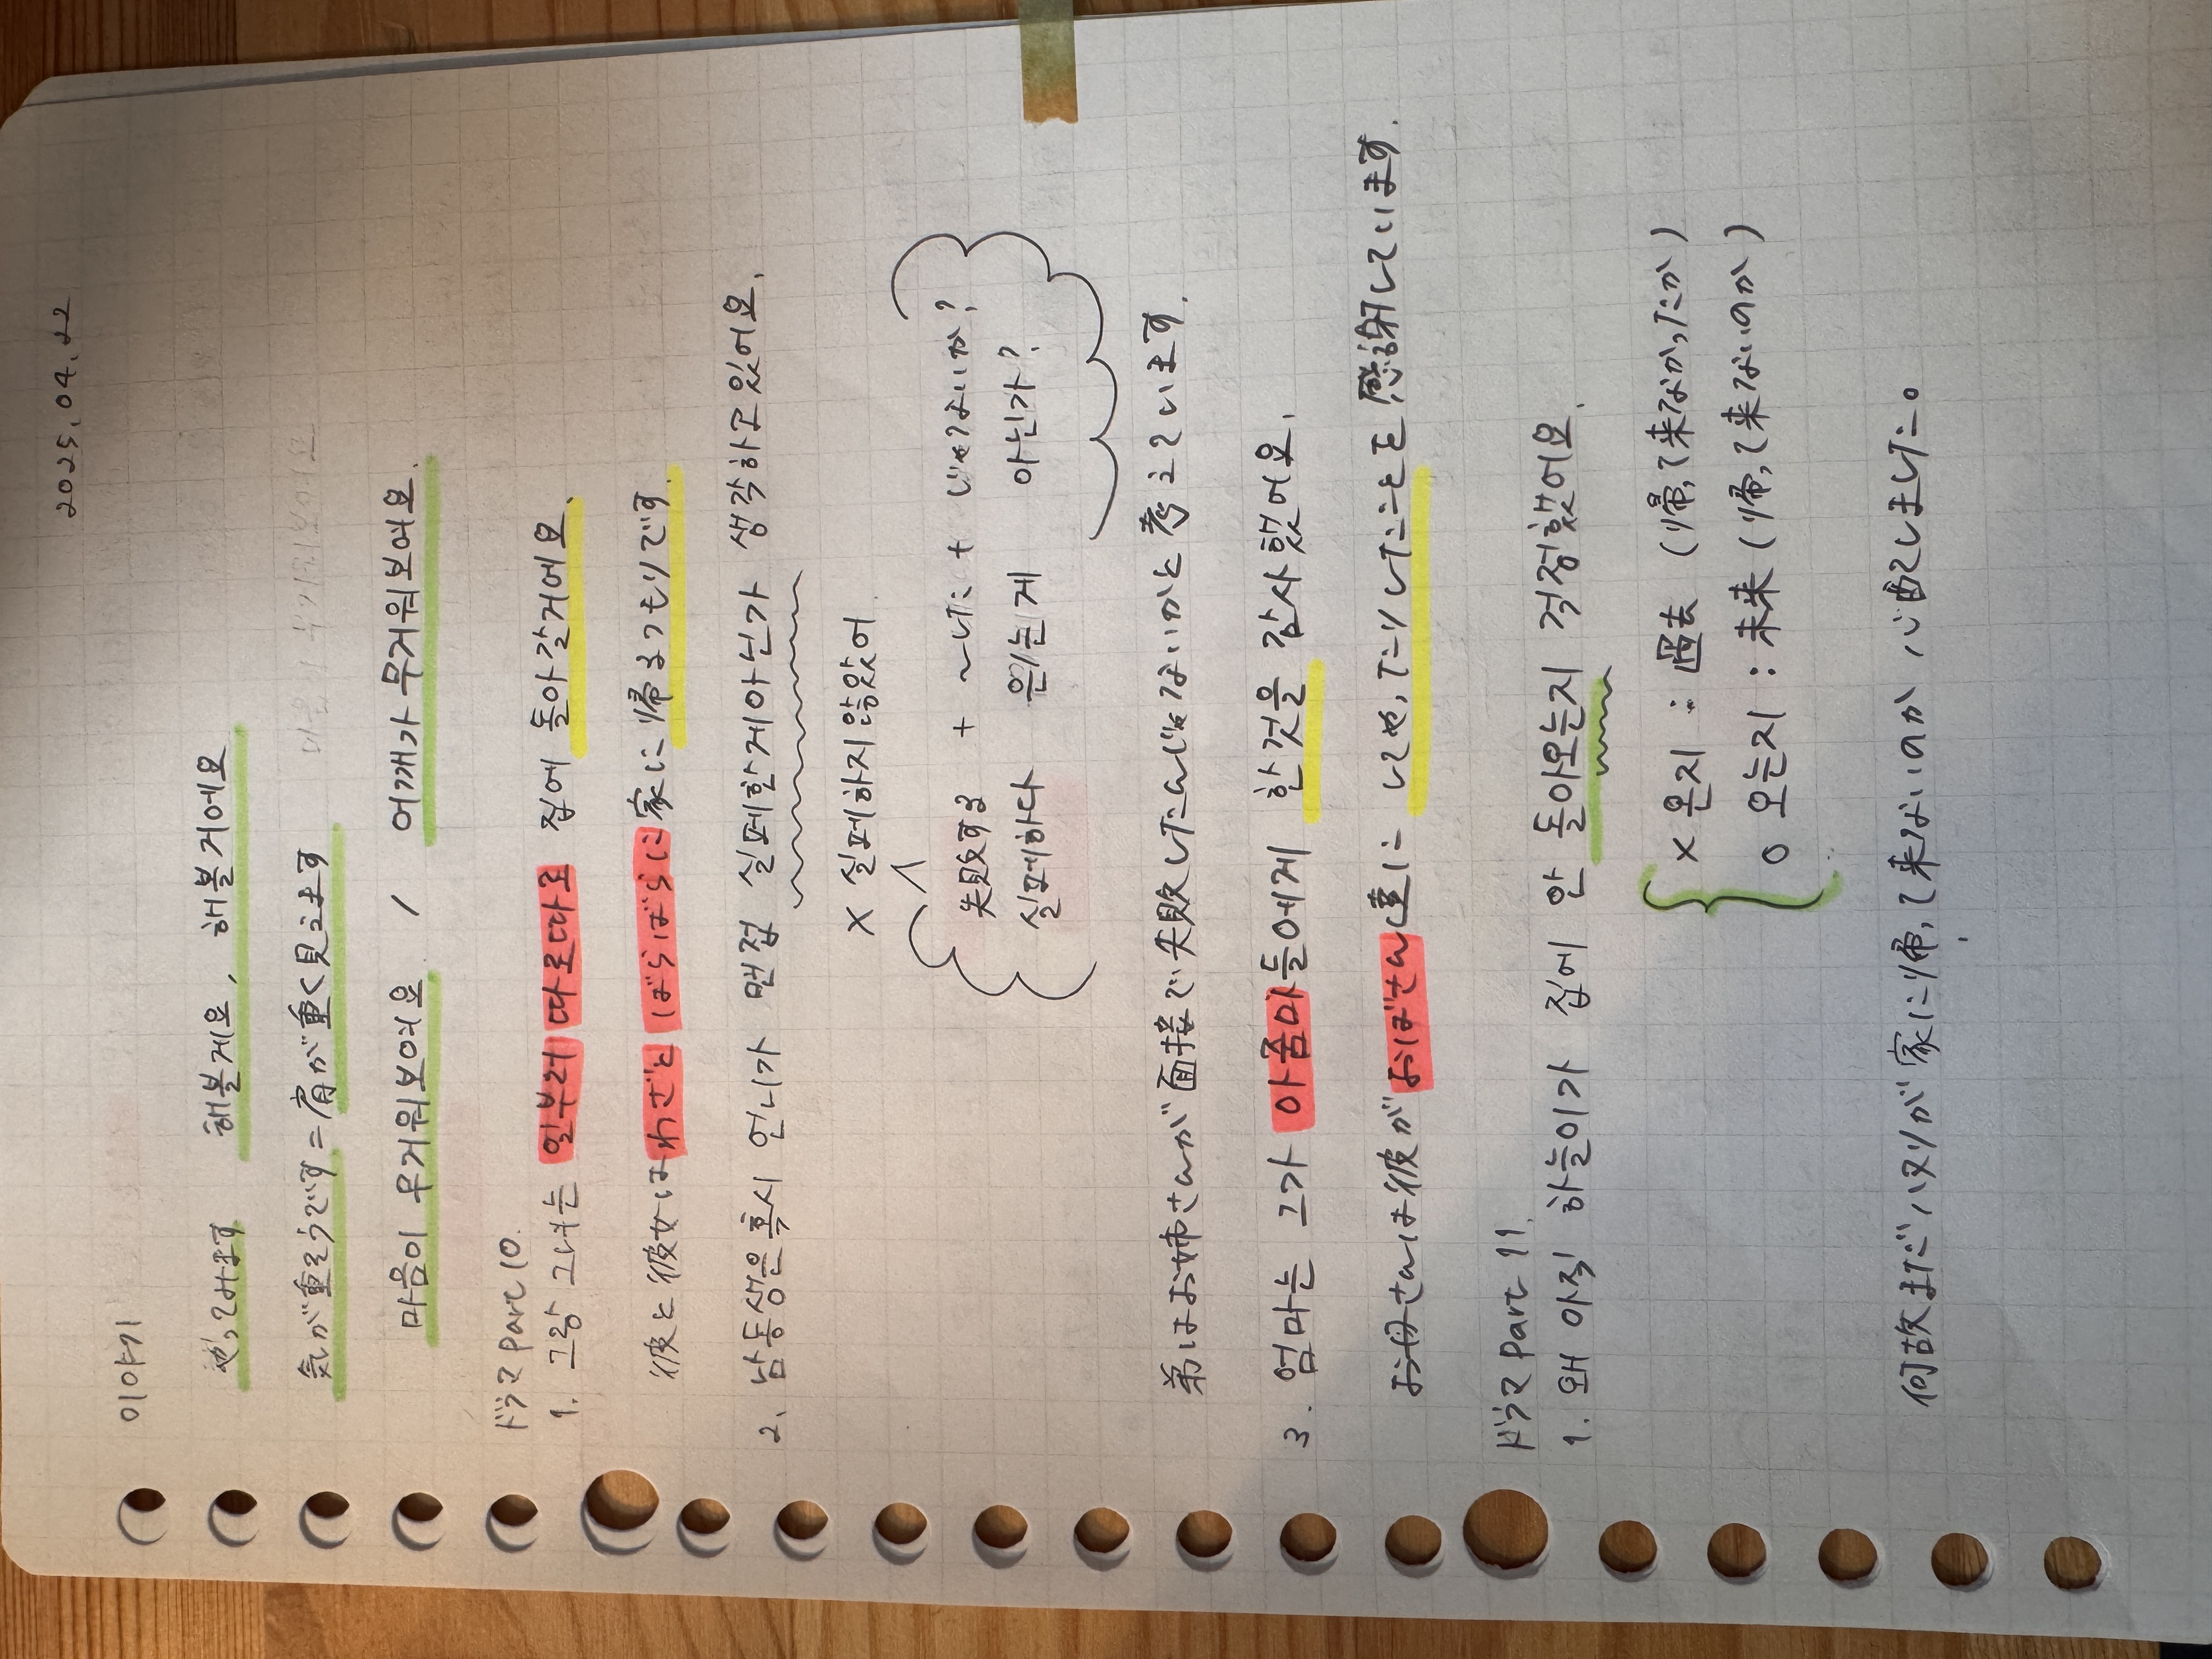 2025.04.22
이야기
やってみます 해볼게요, 해볼거에요
気が重そうです=肩が重く見えます
마음이 무거워보여요 / 어깨가 무거워보여요.
ドラマ Part 10.
1. 그랑 그녀는 일부러 따로따로 집에 돌아갈거에요.
彼と彼女はわざと ばらばらに家に帰るつもりです.
2. 남동생은 혹시 언니가 면접 실페한게아닌가 생각하고 있어요.
× 실페하지 않았어
失敗する + ~した + じゃないか?
실페하다 은/는게 아닌가?
弟はお姉さんが面接で失敗したんじゃないかと考えています.
3. 엄마는 그가 아줌마들에게 한 것을 감사했어요.
お母さんは彼がおばさん達に してや,てたりしたことを感謝しています.
ドラマ Part 11.
1. 왜 아직 하늘이가 집에 안 돌아오는지 걱정했어요.
× 온지 : 過去 (帰って来なかったか)
○ 오는지 : 未来 (帰って来ないのか)
何故まだハヌリが家に帰って来ないのか心配しました。